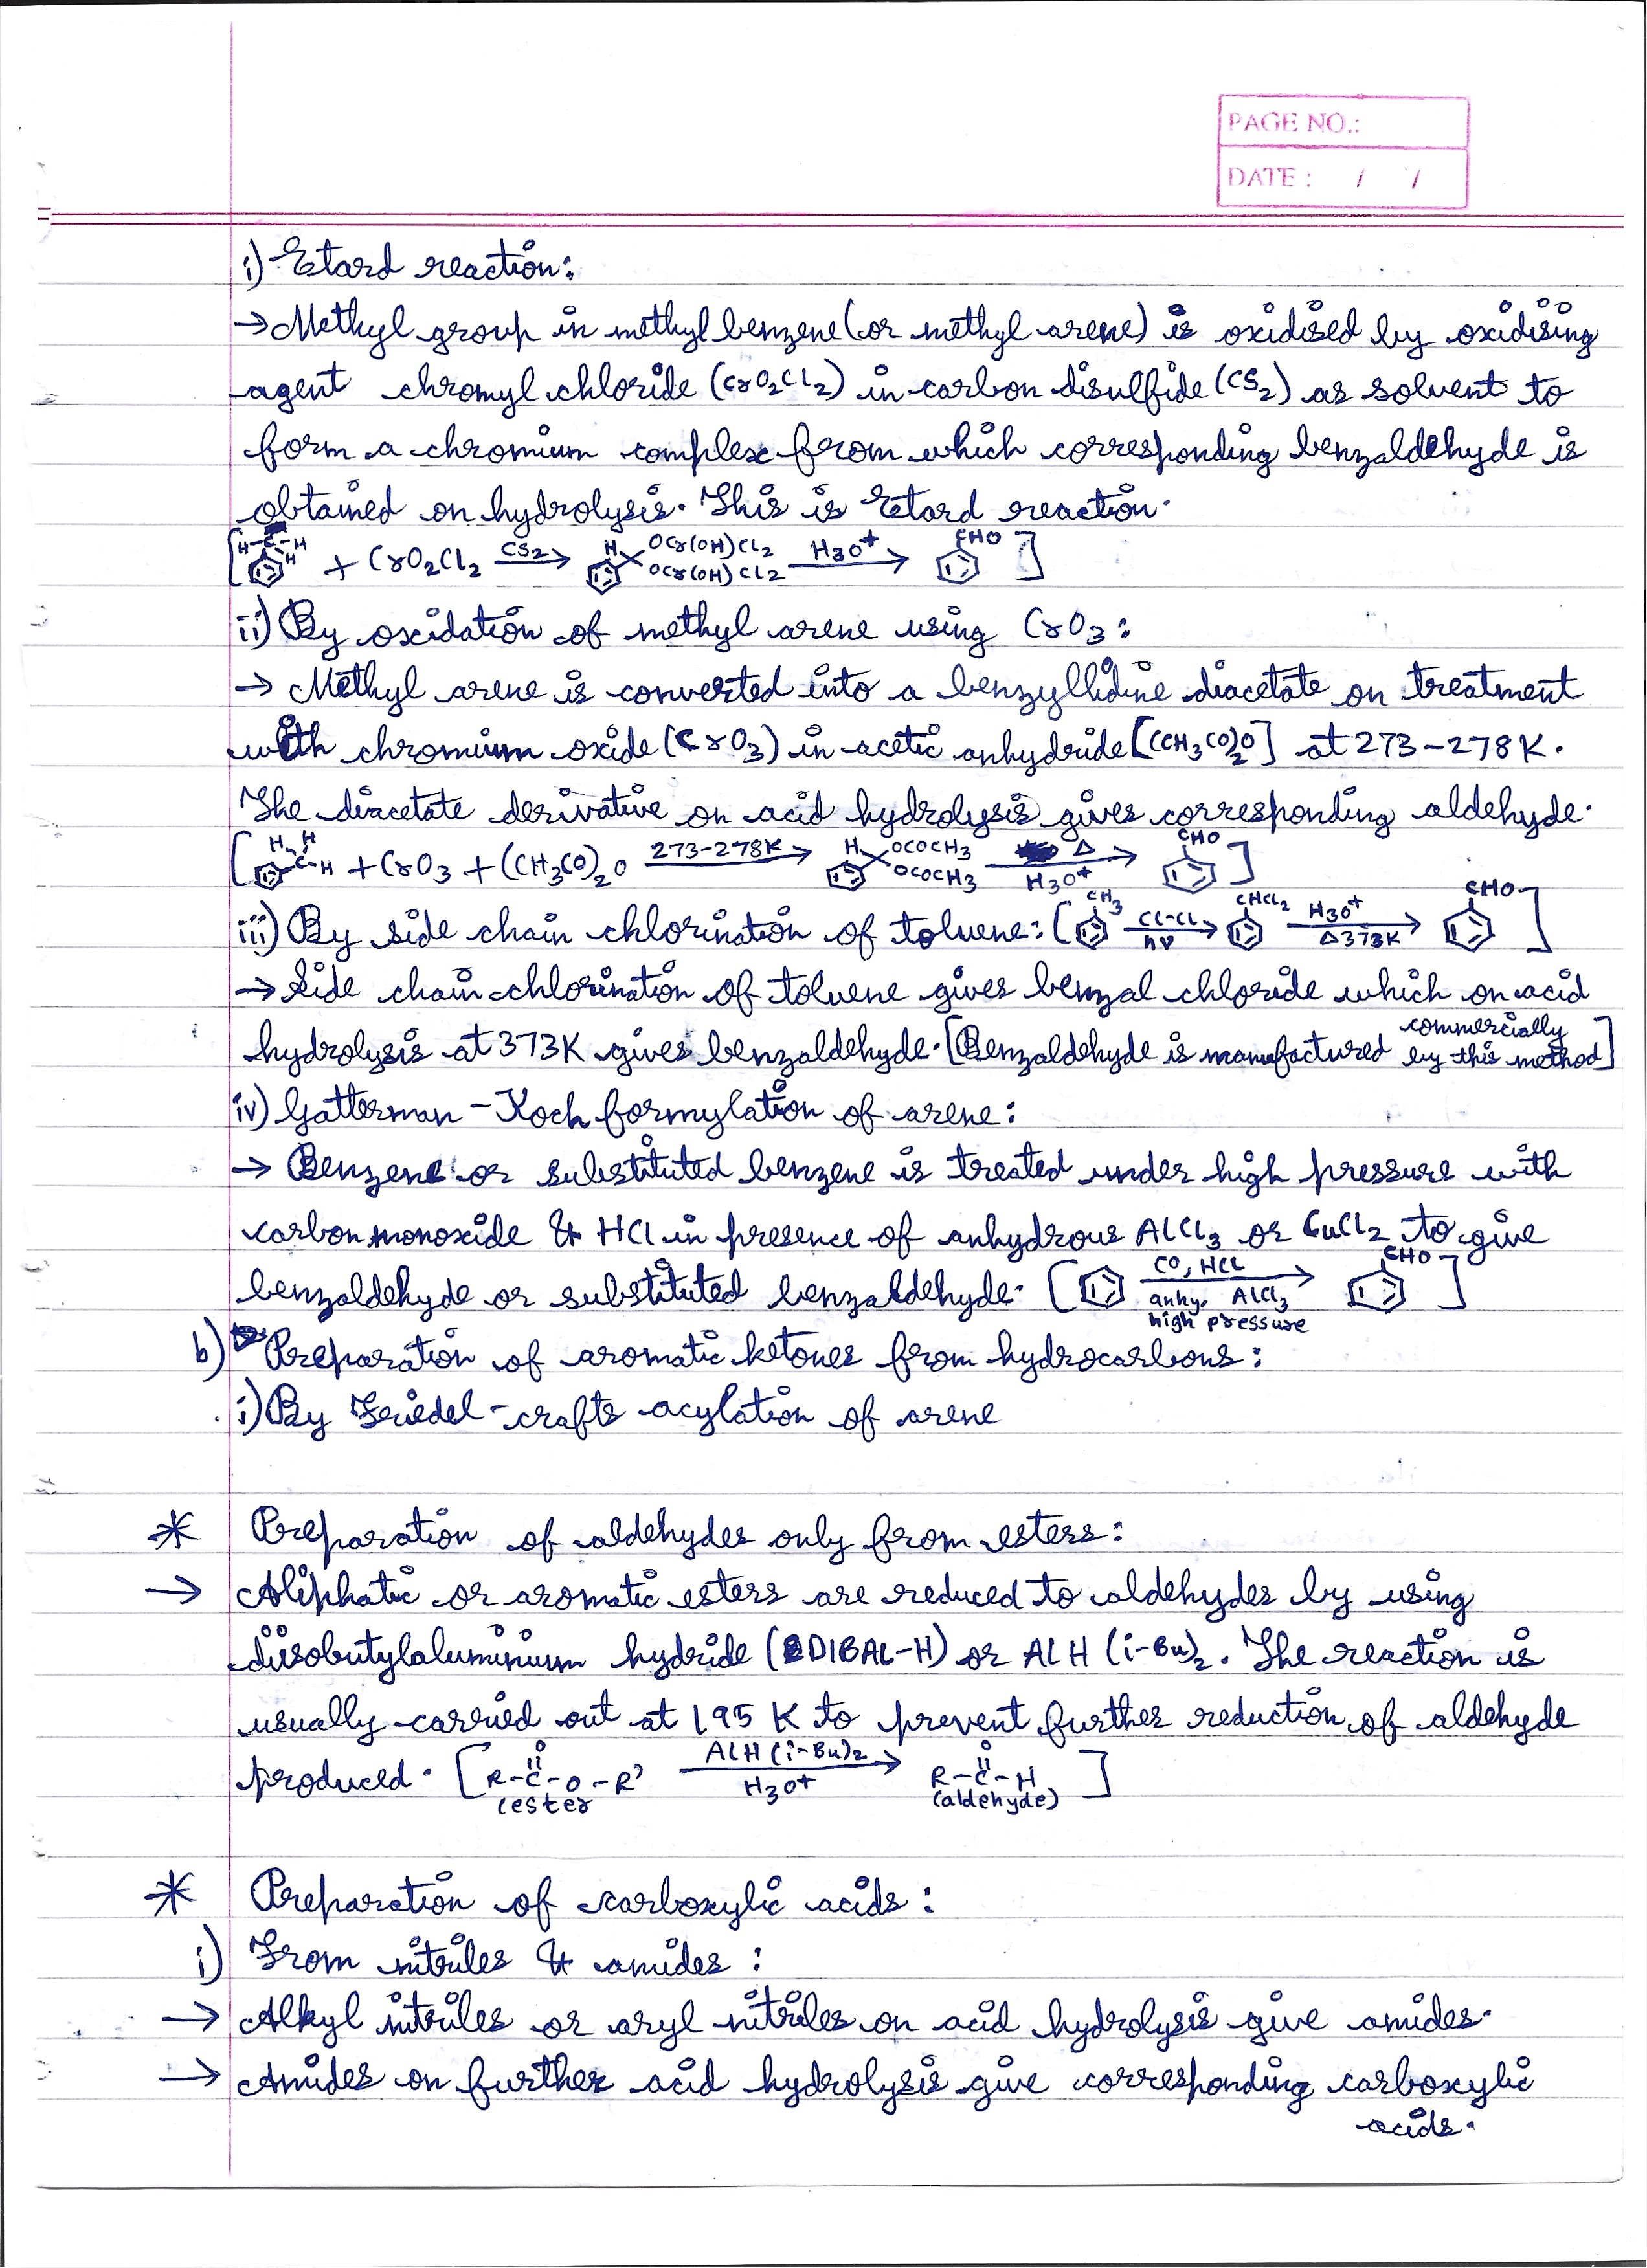 PAGE NO.:
DATE : / /
i) Etard reaction:
→ Methyl group in methyl benzene (or methyl arene) is oxidised by oxidising
agent chromyl chloride (CrO2Cl2) in carbon disulfide (CS2) as solvent to
form a chromium complex from which corresponding benzaldehyde is
obtained on hydrolysis. This is Etard reaction.
[ H-C-H H + CrO2Cl2 CS2→ H OCr(OH)Cl2 OCr(OH)Cl2 H3O+→ CHO ]
ii) By oxidation of methyl arene using CrO3:
→ Methyl arene is converted into a benzyllidine diacetate on treatment
with chromium oxide (CrO3) in acetic anhydride [(CH3CO)2O] at 273-278K.
The diacetate derivative on acid hydrolysis gives corresponding aldehyde.
[ H H C-H + CrO3 + (CH3CO)2O 273-278K→ H OCOCH3 OCOCH3 Δ H3O+→ CHO ]
iii) By side chain chlorination of toluene: [ CH3 Cl-Cl hν→ CHCl2 H3O+ Δ373K→ CHO ]
→ Side chain chlorination of toluene gives benzal chloride which on acid
hydrolysis at 373K gives benzaldehyde. [Benzaldehyde is manufactured commercially by this method]
iv) Gatterman - Koch formylation of arene:
→ Benzene or substituted benzene is treated under high pressure with
carbon monoxide & HCl in presence of anhydrous AlCl3 or CuCl2 to give
benzaldehyde or substituted benzaldehyde. [ CO, HCl anhy. AlCl3 high pressure→ CHO ]
b) Preparation of aromatic ketones from hydrocarbons:
i) By Friedel-crafts acylation of arene
* Preparation of aldehydes only from esters:
→ Aliphatic or aromatic esters are reduced to aldehydes by using
diisobutylaluminium hydride (DIBAL-H) or AlH (i-Bu)2. The reaction is
usually carried out at 195 K to prevent further reduction of aldehyde
produced. [ R-C(=O)-O-R' (ester AlH(i-Bu)2 H3O+→ R-C(=O)-H (aldehyde) ]
* Preparation of carboxylic acids:
i) From nitriles & amides :
→ Alkyl nitriles or aryl nitriles on acid hydrolysis give amides.
→ Amides on further acid hydrolysis give corresponding carboxylic
acids.